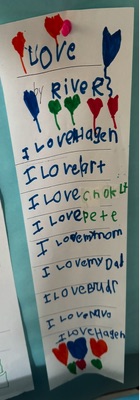 LOVE
by RIVER
I LOVE Hagen
I LOVE art
I LOVE chokLt
I LOVE Pete
I LOVE mY mom
I LOVE mY Dad
I LOVE
I LOVE
I LOVE Hagen